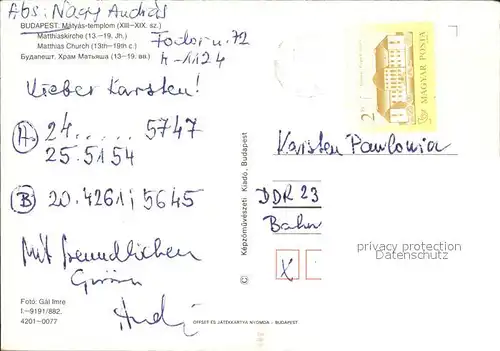 Abs: Nagy András
BUDAPEST. Mátyás-templom (XIII–XIX. sz.)
Matthiaskirche (13.–19. Jh.)
Matthias Church (13th–19th c.)
Будапешт. Храм Матьяша (13–19. вв.)
Fodor u. 72
H-1124
Lieber Karsten!
(A) 24 ..... 5747
25.5154
(B) 20.4261i 5645
Mit freundlichen
Grüssen
Andy
Fotó: Gál Imre
I.—9191/882.
4201—0077
Képzőművészeti Kiadó, Budapest
©
OFFSET ÉS JÁTÉKKÁRTYA NYOMDA – BUDAPEST
2 Ft
MAGYAR POSTA
Karsten Pawlonia
DDR 23
Bahn
X
privacy protection
watermark